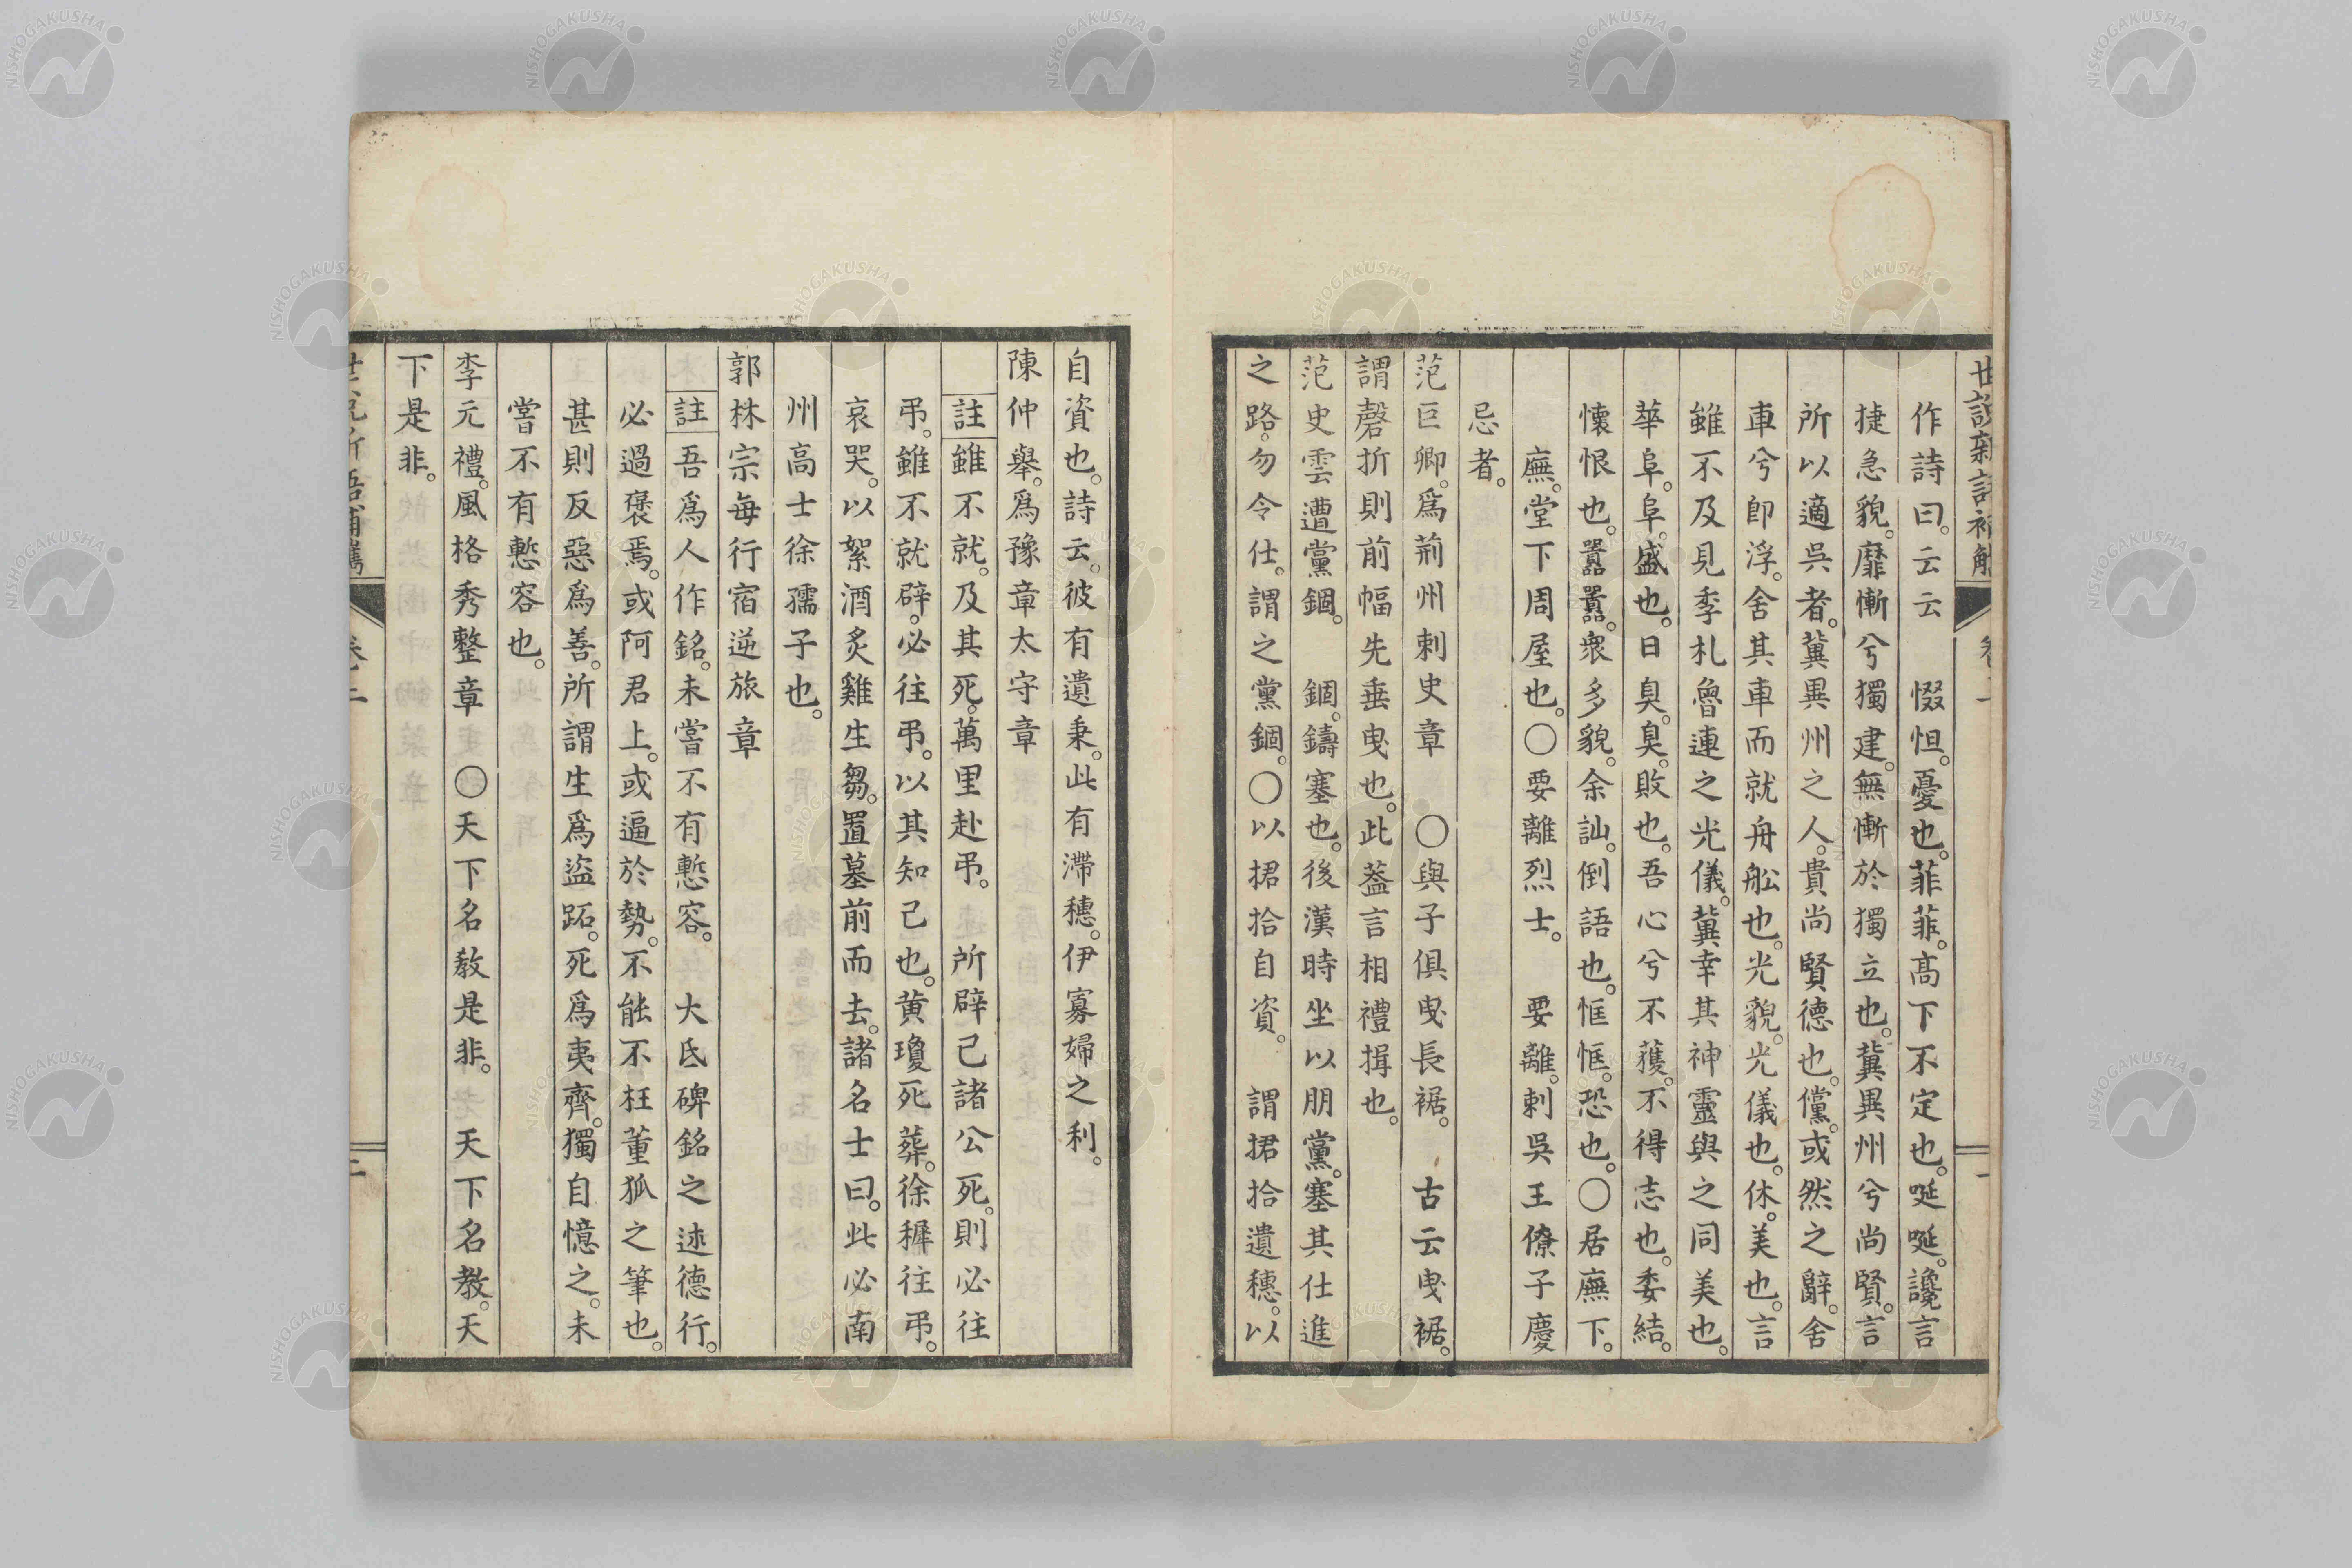 作詩曰。云云　惙怛。憂也。菲菲。高下不定也。唌唌。讒言
捷急貌。靡慚兮獨建。無慚於獨立也。冀異州兮尚賢。言
所以適吳者。冀異州之人。貴尚賢德也。儻。或然之辭。舍
車兮卽浮。舍其車而就舟舩也。光貌。光儀也。休。美也。言
雖不及見季札魯連之光儀。冀幸其神靈與之同美也。
華阜。阜。盛也。日臭。臭。敗也。吾心兮不獲。不得志也。委結。
懷恨也。囂囂。衆多貌。余訕。倒語也。恇恇。恐也。○居廡下。
廡。堂下周屋也。○要離烈士。　要離。刺吳王僚子慶
忌者。
范巨卿。爲荊州刺史章　○與子俱曳長裾。　古云曳裾。
謂磬折則前幅先垂曳也。此葢言相禮揖也。
范史雲遭黨錮。　錮。鑄塞也。後漢時坐以朋黨。塞其仕進
之路。勿令仕。謂之黨錮。○以捃拾自資。　謂捃拾遺穗。以
自資也。詩云。彼有遺秉。此有滯穗。伊寡婦之利。
陳仲舉。爲豫章太守章
註　雖不就。及其死。萬里赴弔。　所辟己諸公死。則必往
弔。雖不就辟。必往弔。以其知己也。黄瓊死葬。徐穉往弔。
哀哭。以絮酒炙雞生芻。置墓前而去。諸名士曰。此必南
州高士徐孺子也。
郭林宗每行宿逆旅章
註　吾爲人作銘。未嘗不有慙容。　大氐碑銘之述德行。
必過襃焉。或阿君上。或逼於勢。不能不枉董狐之筆也。
甚則反惡爲善。所謂生爲盜跖。死爲夷齊。獨自憶之。未
嘗不有慙容也。
李元禮。風格秀整章　○天下名敎是非。　天下名教。天
下是非。